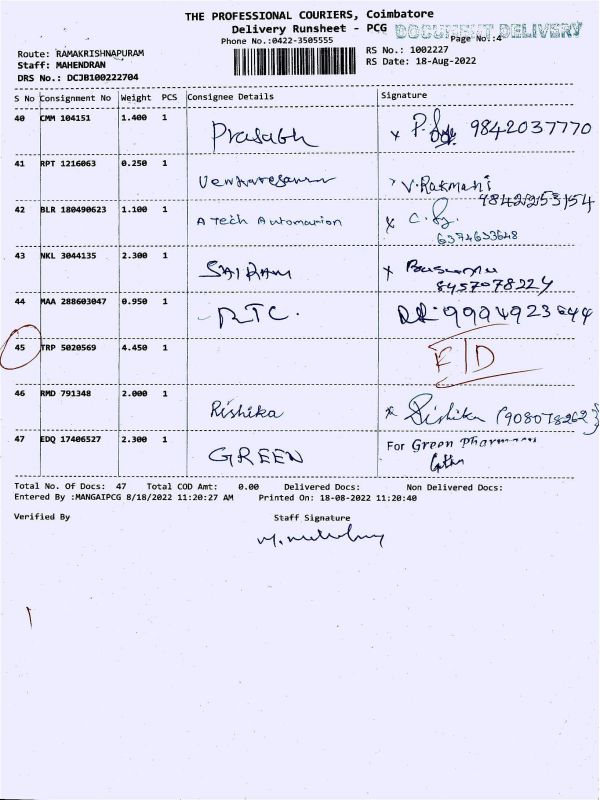 THE PROFESSIONAL COURIERS, Coimbatore
Delivery Runsheet - PCG DOCUMENT DELIVERY
Phone No.:0422-3505555 Page No.:4
Route: RAMAKRISHNAPURAM RS No.: 1002227
Staff: MAHENDRAN RS Date: 18-Aug-2022
DRS No.: DCJB100222704
S No Consignment No Weight PCS Consignee Details Signature
40 CMM 104151 1.400 1 Prasabh x 9842037770
41 RPT 1216063 0.250 1 V. Rakmani
9842253154
42 BLR 180490623 1.100 1 A Tech Automation x
6374633648
43 NKL 3044135 2.300 1 SAIRAM x
8457078224
44 MAA 288603047 0.950 1 RTC. 9994923644
45 TRP 5020569 4.450 1 E/D
46 RMD 791348 2.000 1 Rishika x Rishika (908078262)
47 EDQ 17406527 2.300 1 GREEN For Green Pharmacy
Total No. Of Docs: 47 Total COD Amt: 0.00 Delivered Docs: Non Delivered Docs:
Entered By :MANGAIPCG 8/18/2022 11:20:27 AM Printed On: 18-08-2022 11:20:40
Verified By Staff Signature